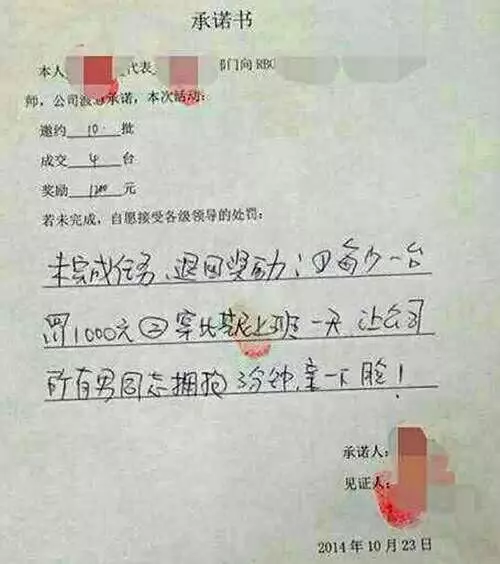 承诺书
本人 代表 部门向 RBC
师,公司 承诺,本次活动:
邀约 10 批
成交 4 台
奖励 1200 元
若未完成,自愿接受各级领导的处罚:
未完成任务、退回奖励;①每少一台
罚1000元②穿比基尼上班一天 让公司
所有男同志拥抱3分钟,亲一下脸!
承诺人:
见证人:
2014 年 10 月 23 日